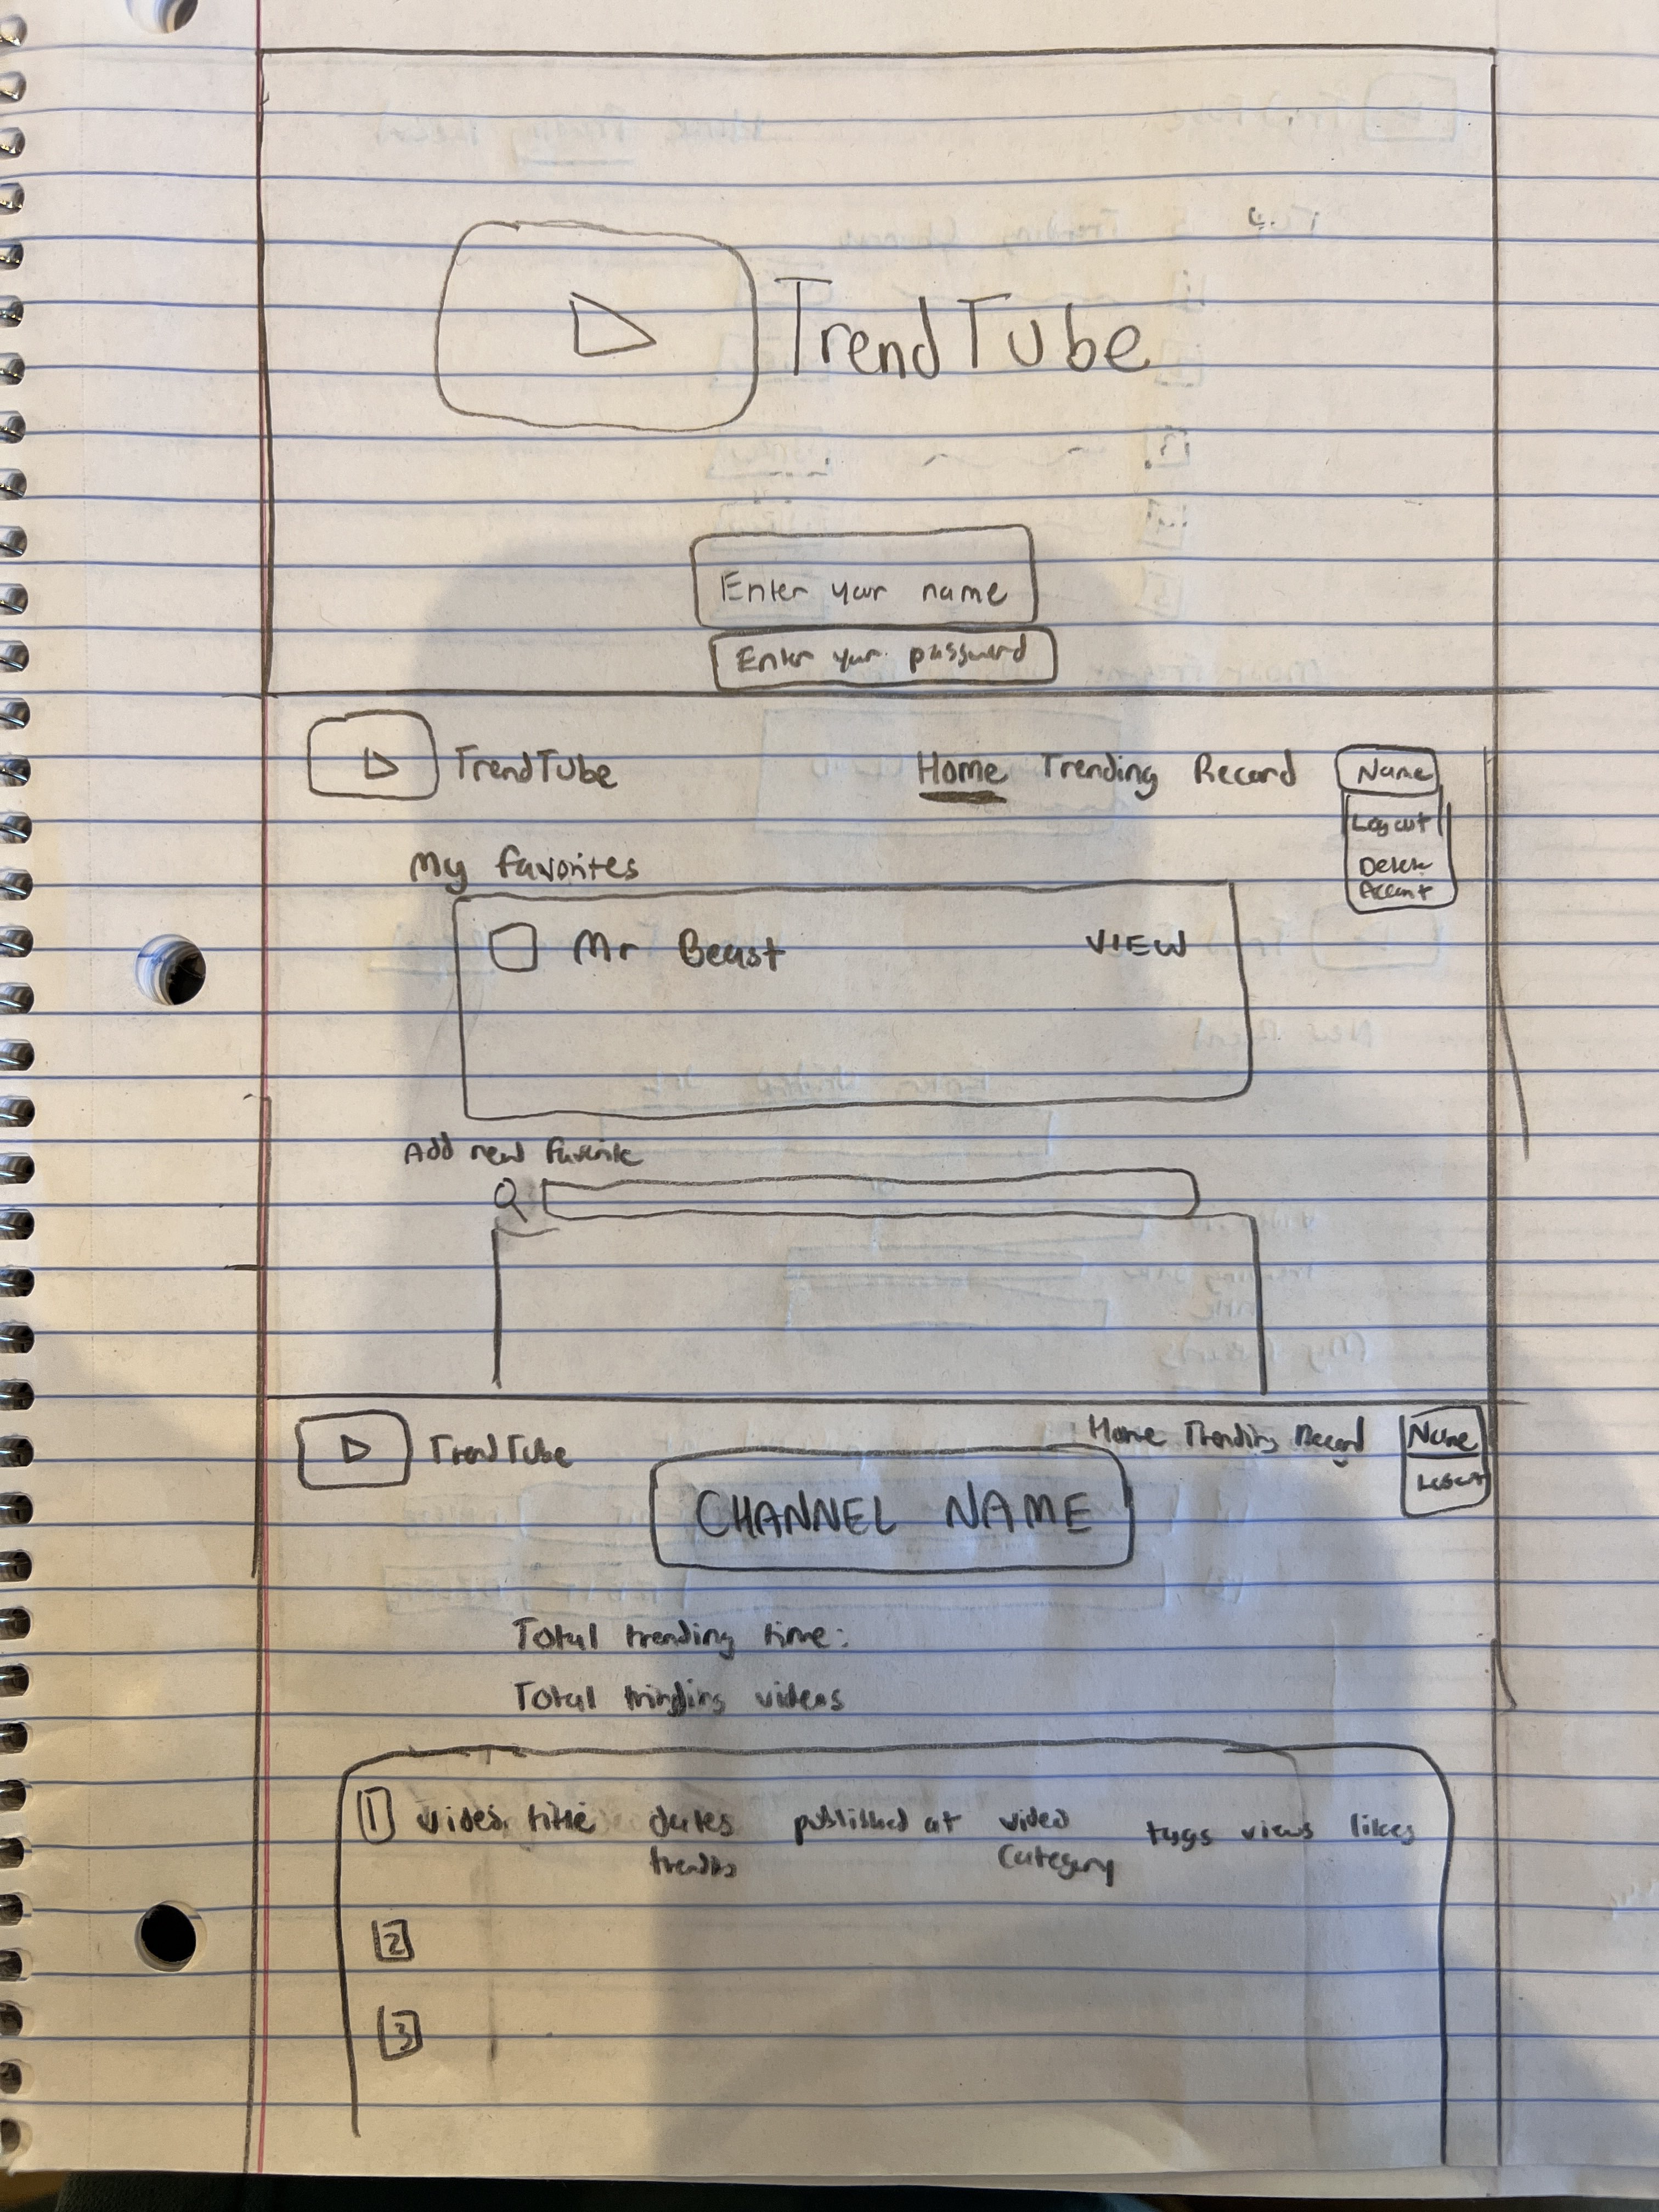 TrendTube
Enter your name
Enter your password
TrendTube Home Trending Record Name
Logout
Delete
Account
My favorites
Mr Beast VIEW
Add new favorite
TrendTube Home Trending Record Name
Logout
CHANNEL NAME
Total trending time:
Total trending videos
1 video title dates published at video tags views likes
category
2
3